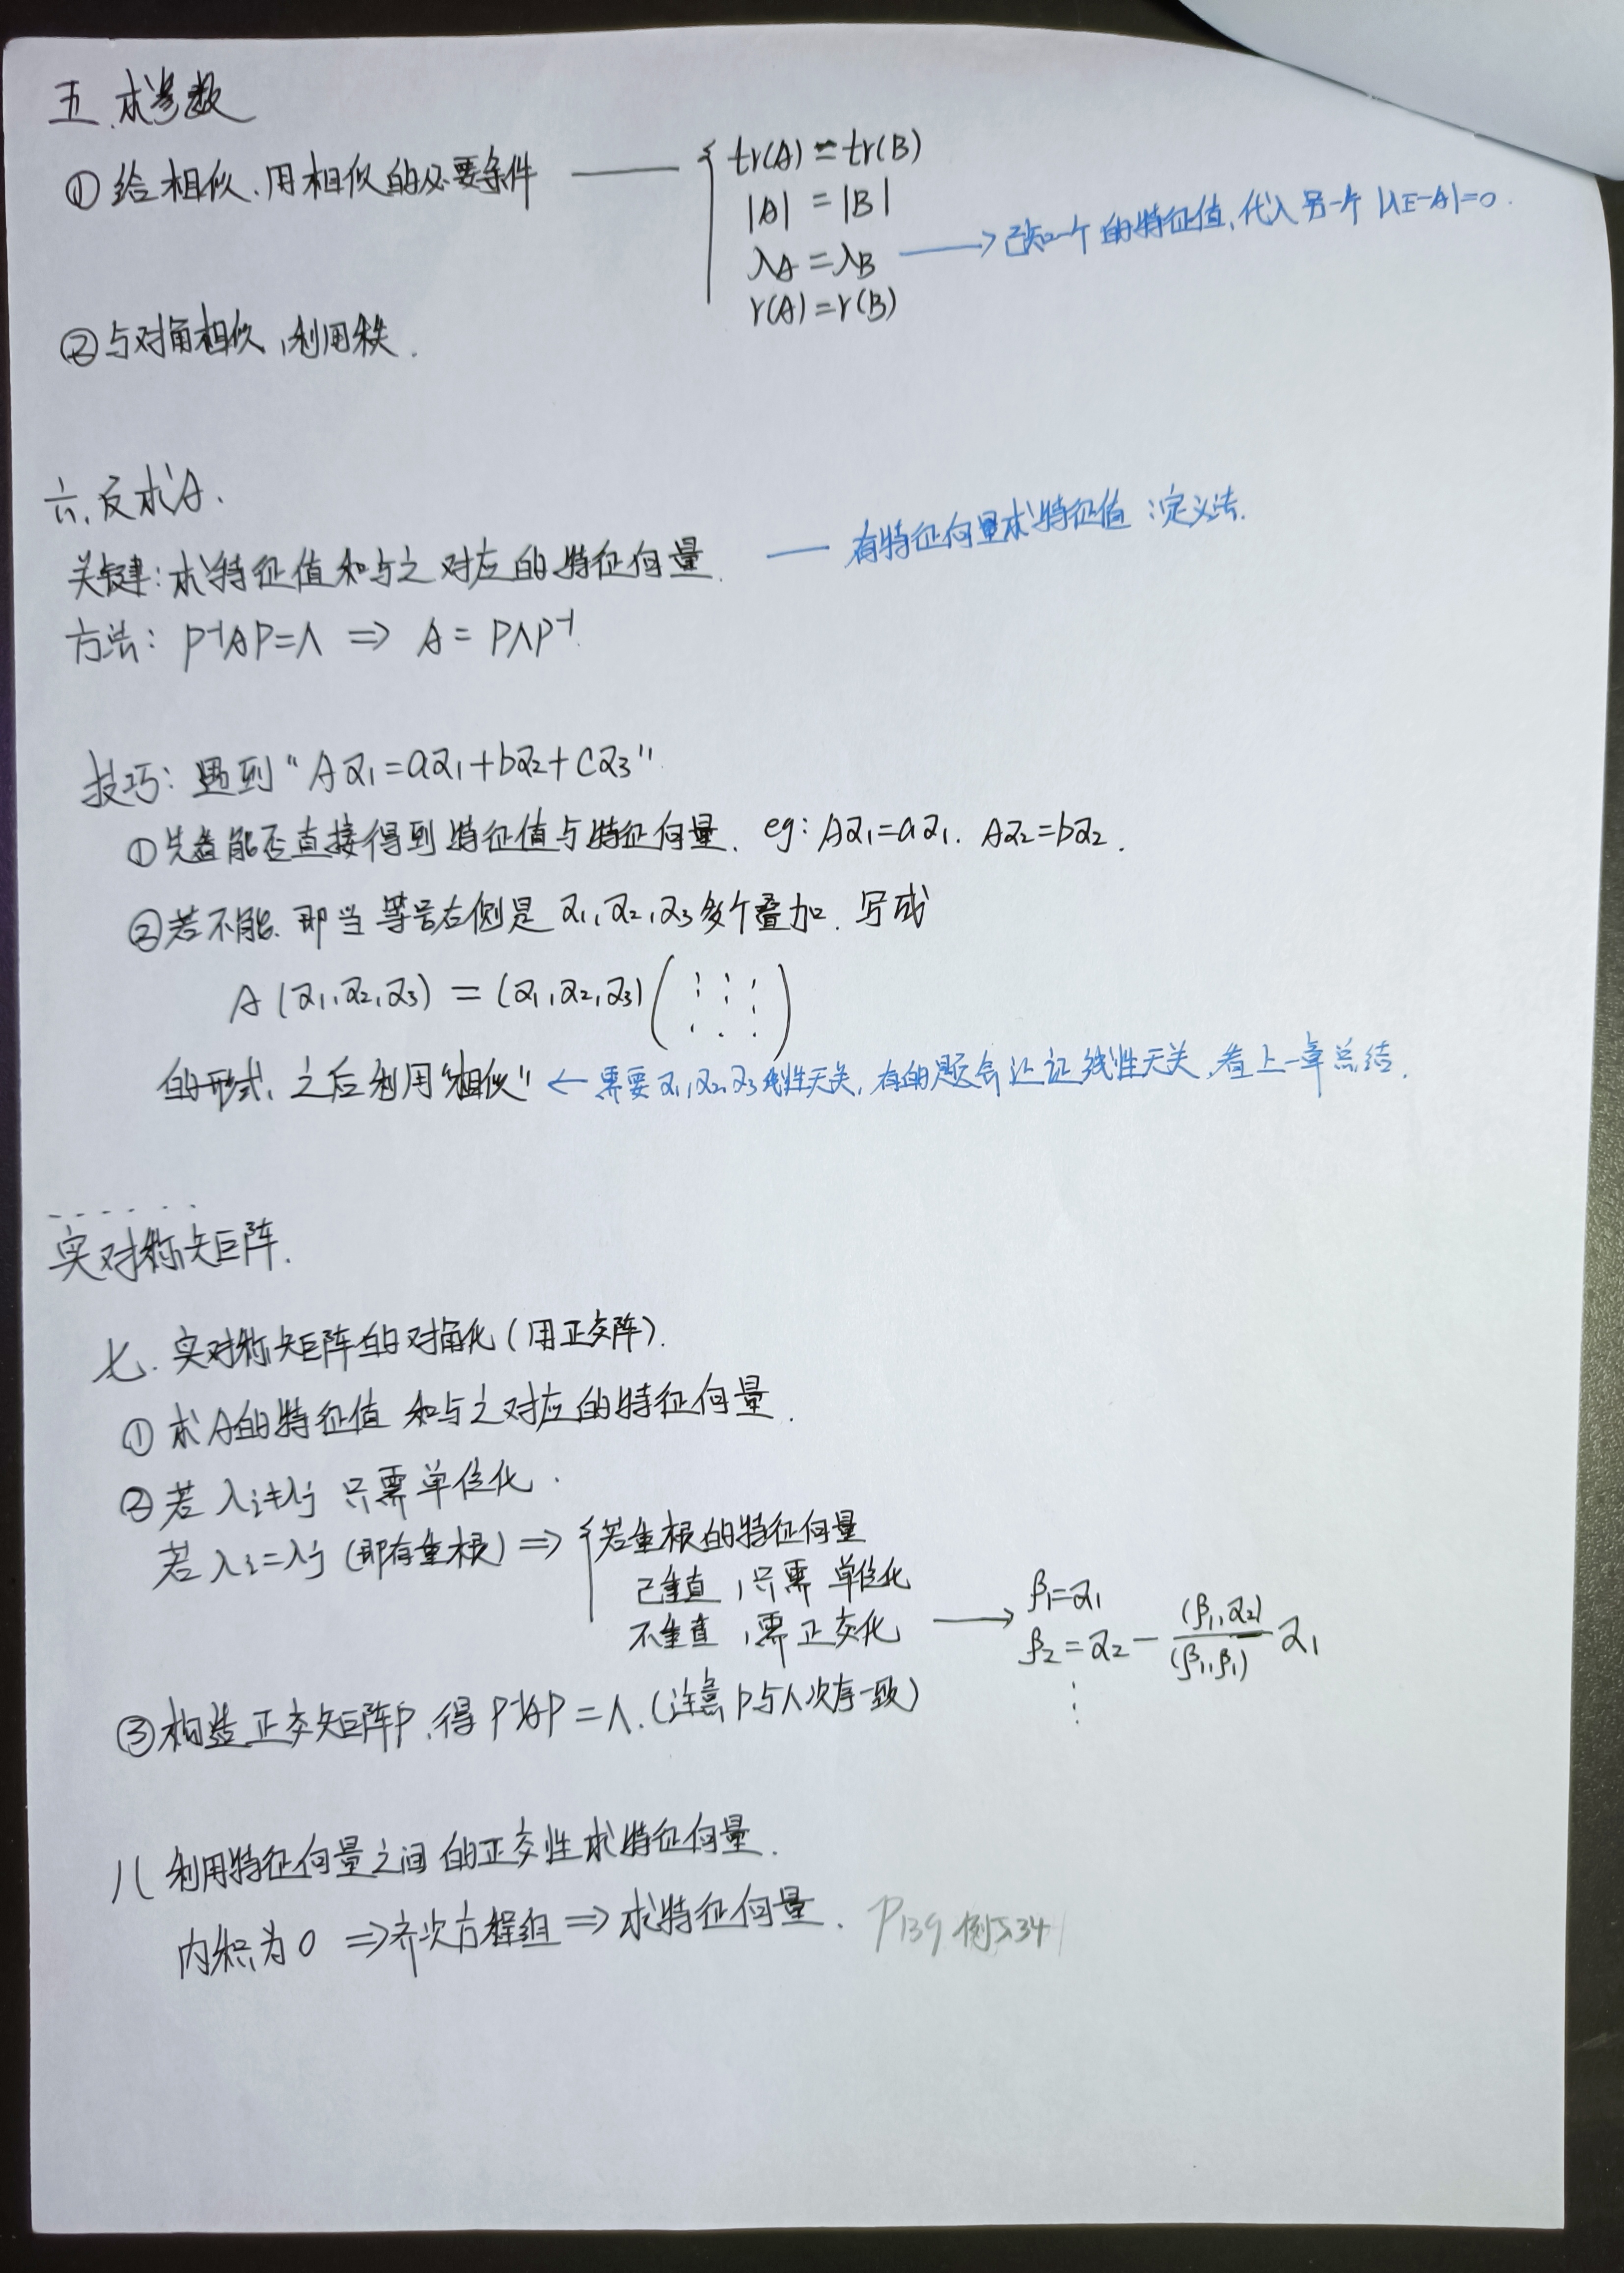 五、求参数
①给相似、用相似的必要条件 —— { tr(A) = tr(B)
|A| = |B|
λA = λB → 已知一个的特征值,代入另一个 |λE-A|=0.
r(A)=r(B)
②与对角相似,利用秩.
六、反求A.
关键:求特征值和与之对应的特征向量. — 有特征向量求特征值:定义法.
方法: P⁻¹AP=Λ ⇒ A = PΛP⁻¹.
技巧:遇到“Aα₁=aα₁+bα₂+cα₃”
①先看能否直接得到特征值与特征向量. eg: Aα₁=aα₁. Aα₂=bα₂.
②若不能.即当等号右侧是α₁,α₂,α₃多个叠加.写成
A(α₁,α₂,α₃) = (α₁,α₂,α₃)(⋮ ⋮ ⋮)
的形式,之后利用“相似” ← 需要α₁,α₂,α₃线性无关,有的题会让证线性无关,看上一章总结.
实对称矩阵.
七.实对称矩阵的对角化(用正交阵).
①求A的特征值和与之对应的特征向量.
②若λi≠λj 只需单位化.
若λi=λj (即有重根) ⇒ { 若重根的特征向量
已垂直,只需单位化
不垂直,需正交化 → β₁=α₁
β₂=α₂-(β₁,α₂)/(β₁,β₁) α₁
⋮
③构造正交矩阵P,得P⁻¹AP=Λ.(注意P与Λ次序一致)
八 利用特征向量之间的正交性求特征向量.
内积为0 ⇒齐次方程组⇒求特征向量. P139 例5.34